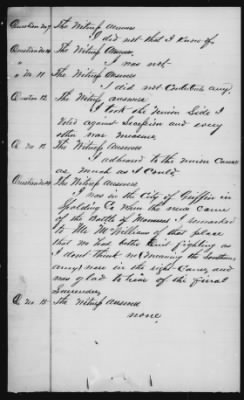 Question No 9 The Witness Answers
I did not that I know of.
Question No 10 The Witness Answers
I was not
" No. 11 The Witness Answers
I did not Contribute any
Question 12. The Witness answers
I took the Union Side I
voted against Secession and every
other war measure
Q No. 13 The Witness Answers
I adhered to the union Cause
as much as I Could
Question No 14 The Witness Answers
I was in the City of Griffin in
Spalding Co when the news came
of the Battle of Manassas I remarked
to Mr McWilliams of that place
that we had better quit fighting as
I dont think we (meaning the southern
army) was in the right Cause, and
was glad to hear of the final
Surrender,
Q No. 15 The Witness answered
none